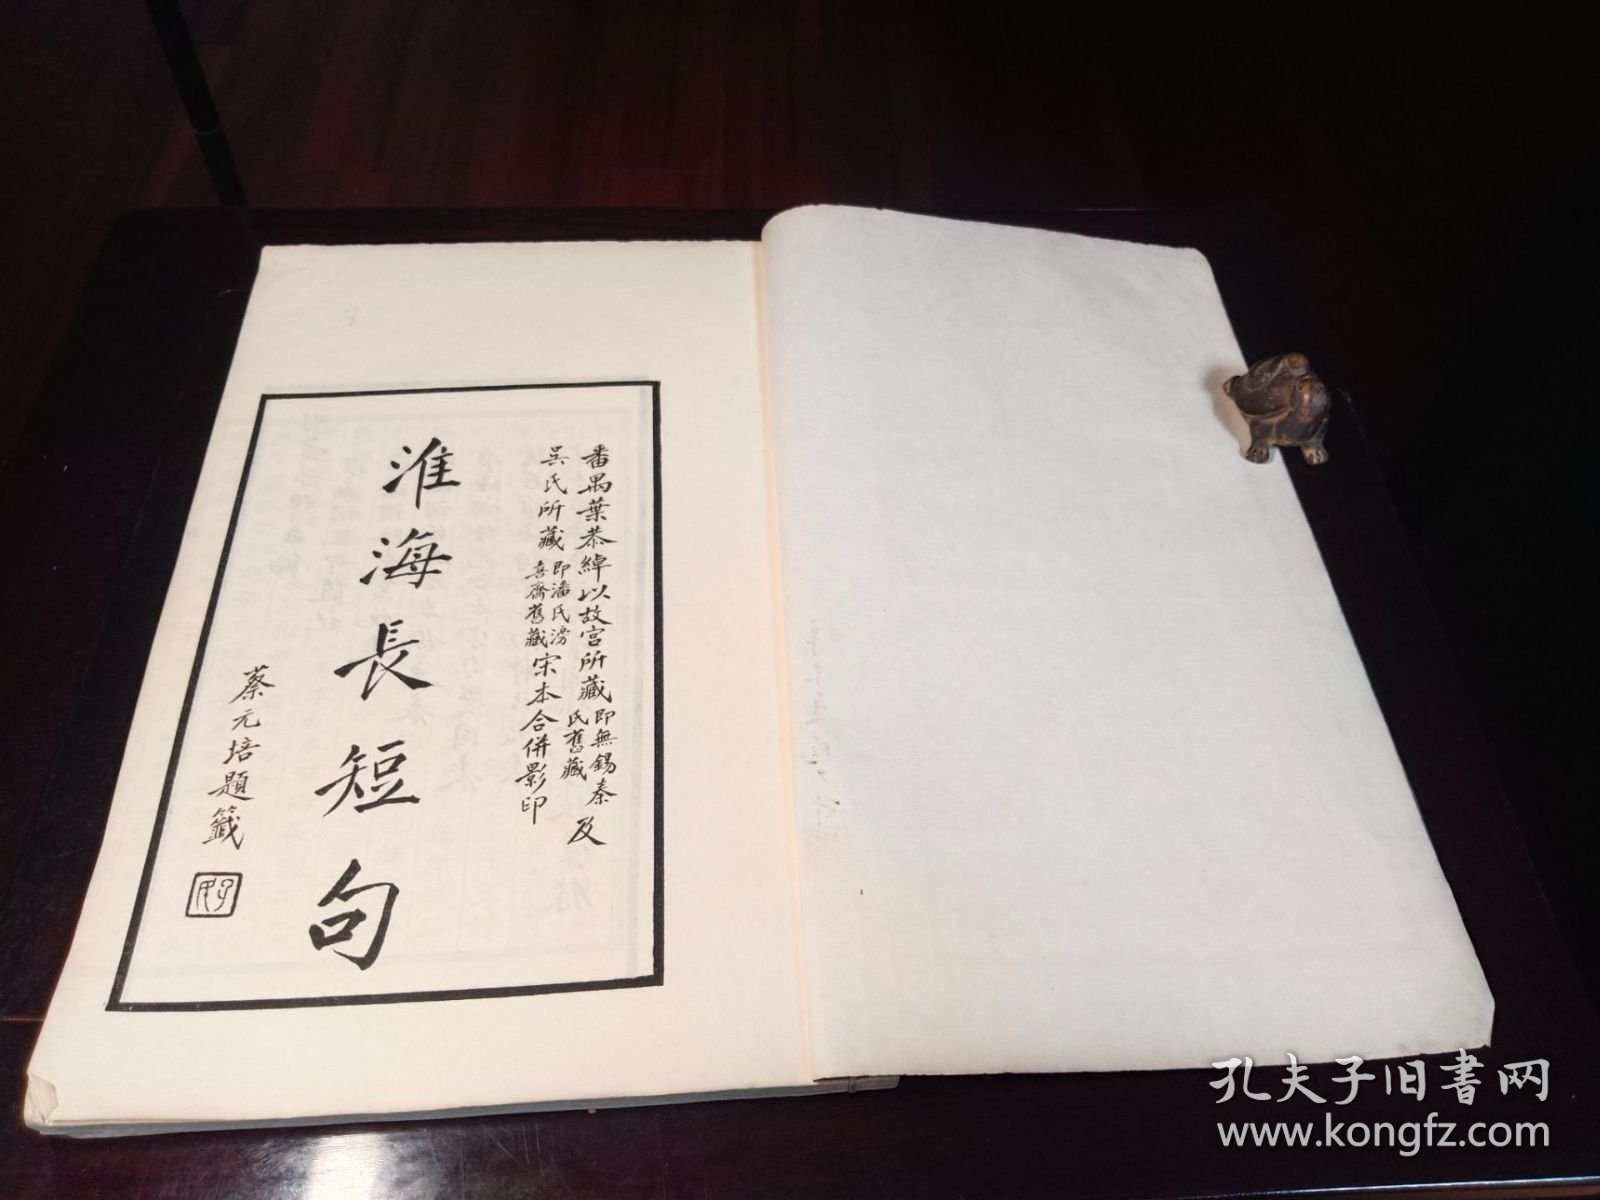 番禺葉恭綽以故宮所藏即無錫秦氏舊藏及
吳氏所藏即潘氏滂喜齋舊藏宋本合併影印
淮海長短句
蔡元培題籤
孔夫子旧書网
www.kongfz.com